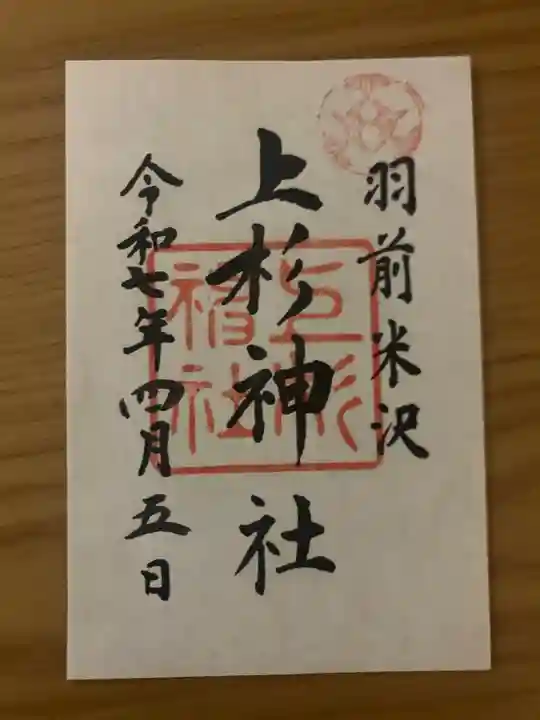 羽前米沢
上杉神社
令和七年四月五日